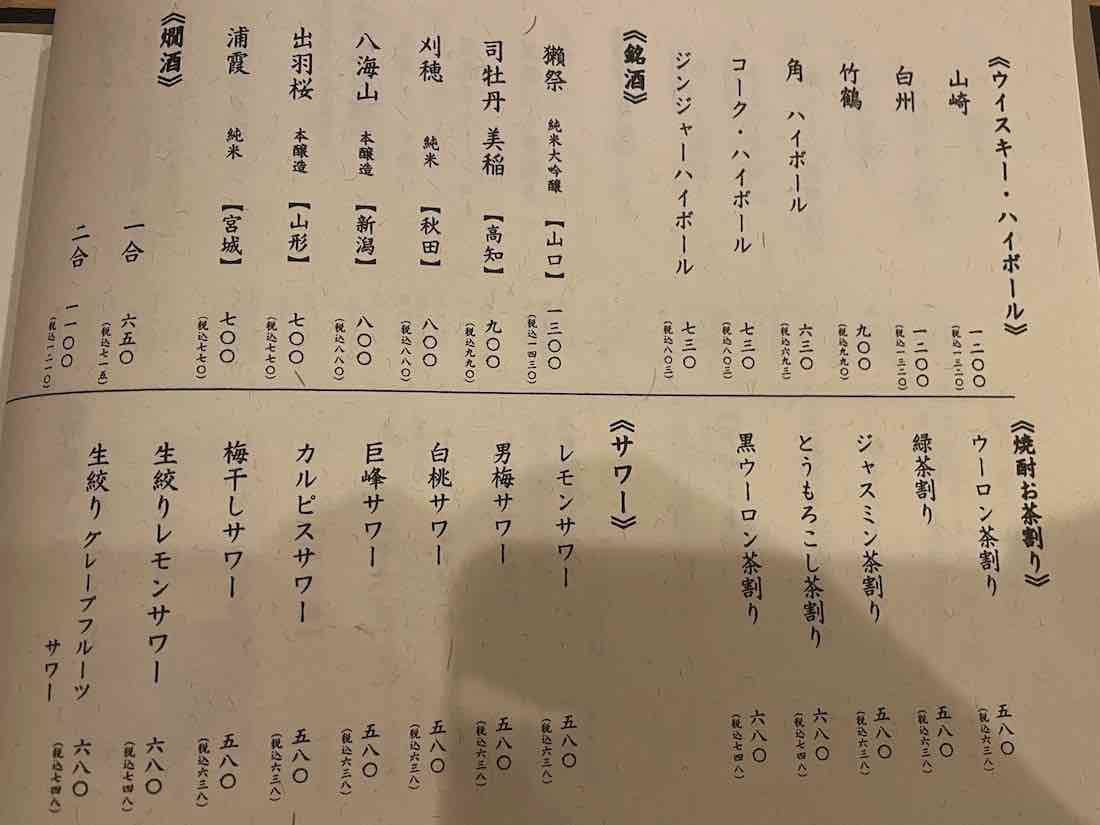 《ウイスキー・ハイボール》
山崎 一二〇〇
(税込一三二〇)
白州 一二〇〇
(税込一三二〇)
竹鶴 九〇〇
(税込九九〇)
角 ハイボール 六三〇
(税込六九三)
コーク・ハイボール 七三〇
(税込八〇三)
ジンジャーハイボール 七三〇
(税込八〇三)
《銘酒》
獺祭 純米大吟醸 【山口】 一三〇〇
(税込一四三〇)
司牡丹 美稲 【高知】 九〇〇
(税込九九〇)
刈穂 純米 【秋田】 八〇〇
(税込八八〇)
八海山 本醸造 【新潟】 八〇〇
(税込八八〇)
出羽桜 本醸造 【山形】 七〇〇
(税込七七〇)
浦霞 純米 【宮城】 七〇〇
(税込七七〇)
《燗酒》
一合 六五〇
(税込七一五)
二合 一一〇〇
(税込一二一〇)
《焼酎お茶割り》
ウーロン茶割り 五八〇
(税込六三八)
緑茶割り 五八〇
(税込六三八)
ジャスミン茶割り 五八〇
(税込六三八)
とうもろこし茶割り 六八〇
(税込七四八)
黒ウーロン茶割り 六八〇
(税込七四八)
《サワー》
レモンサワー 五八〇
(税込六三八)
男梅サワー 五八〇
(税込六三八)
白桃サワー 五八〇
(税込六三八)
巨峰サワー 五八〇
(税込六三八)
カルピスサワー 五八〇
(税込六三八)
梅干しサワー 五八〇
(税込六三八)
生絞りレモンサワー 六八〇
(税込七四八)
生絞り グレープフルーツ
サワー 六八〇
(税込七四八)